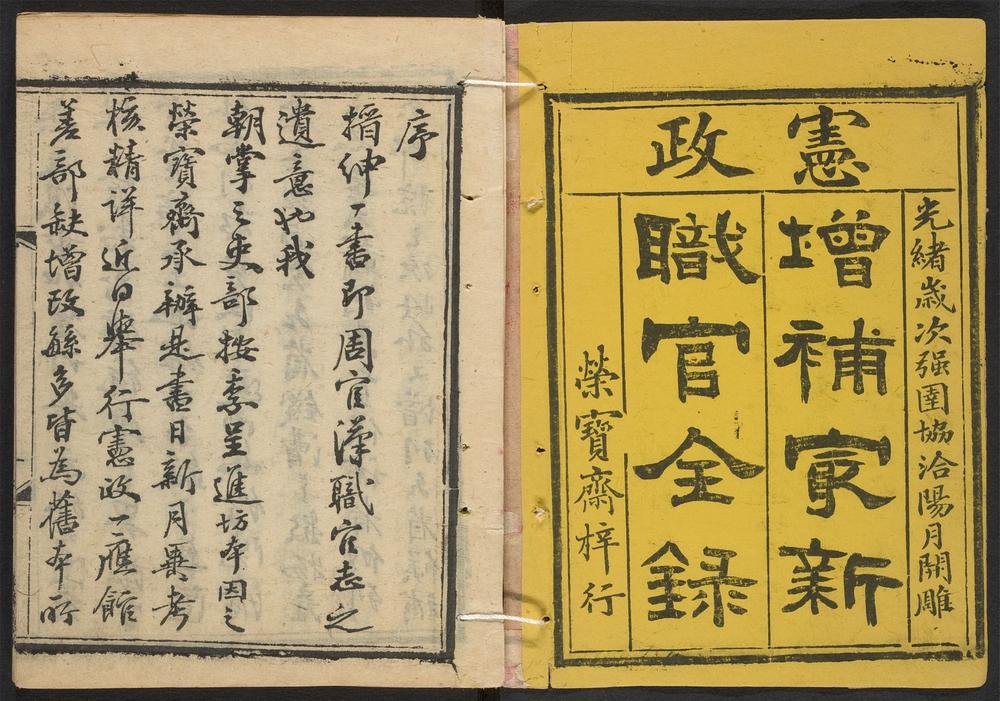 憲政
光緒歲次强圉協洽陽月開雕
增補㝡新
職官全録
榮寶齋梓行
序
搢紳一書即周官漢職官志之
遺意也我
朝掌之吏部按季呈進坊本因之
榮寶齋承辦是書日新月異考
核精詳近日舉行憲政一應館
善部缺增改繇多皆為舊本所